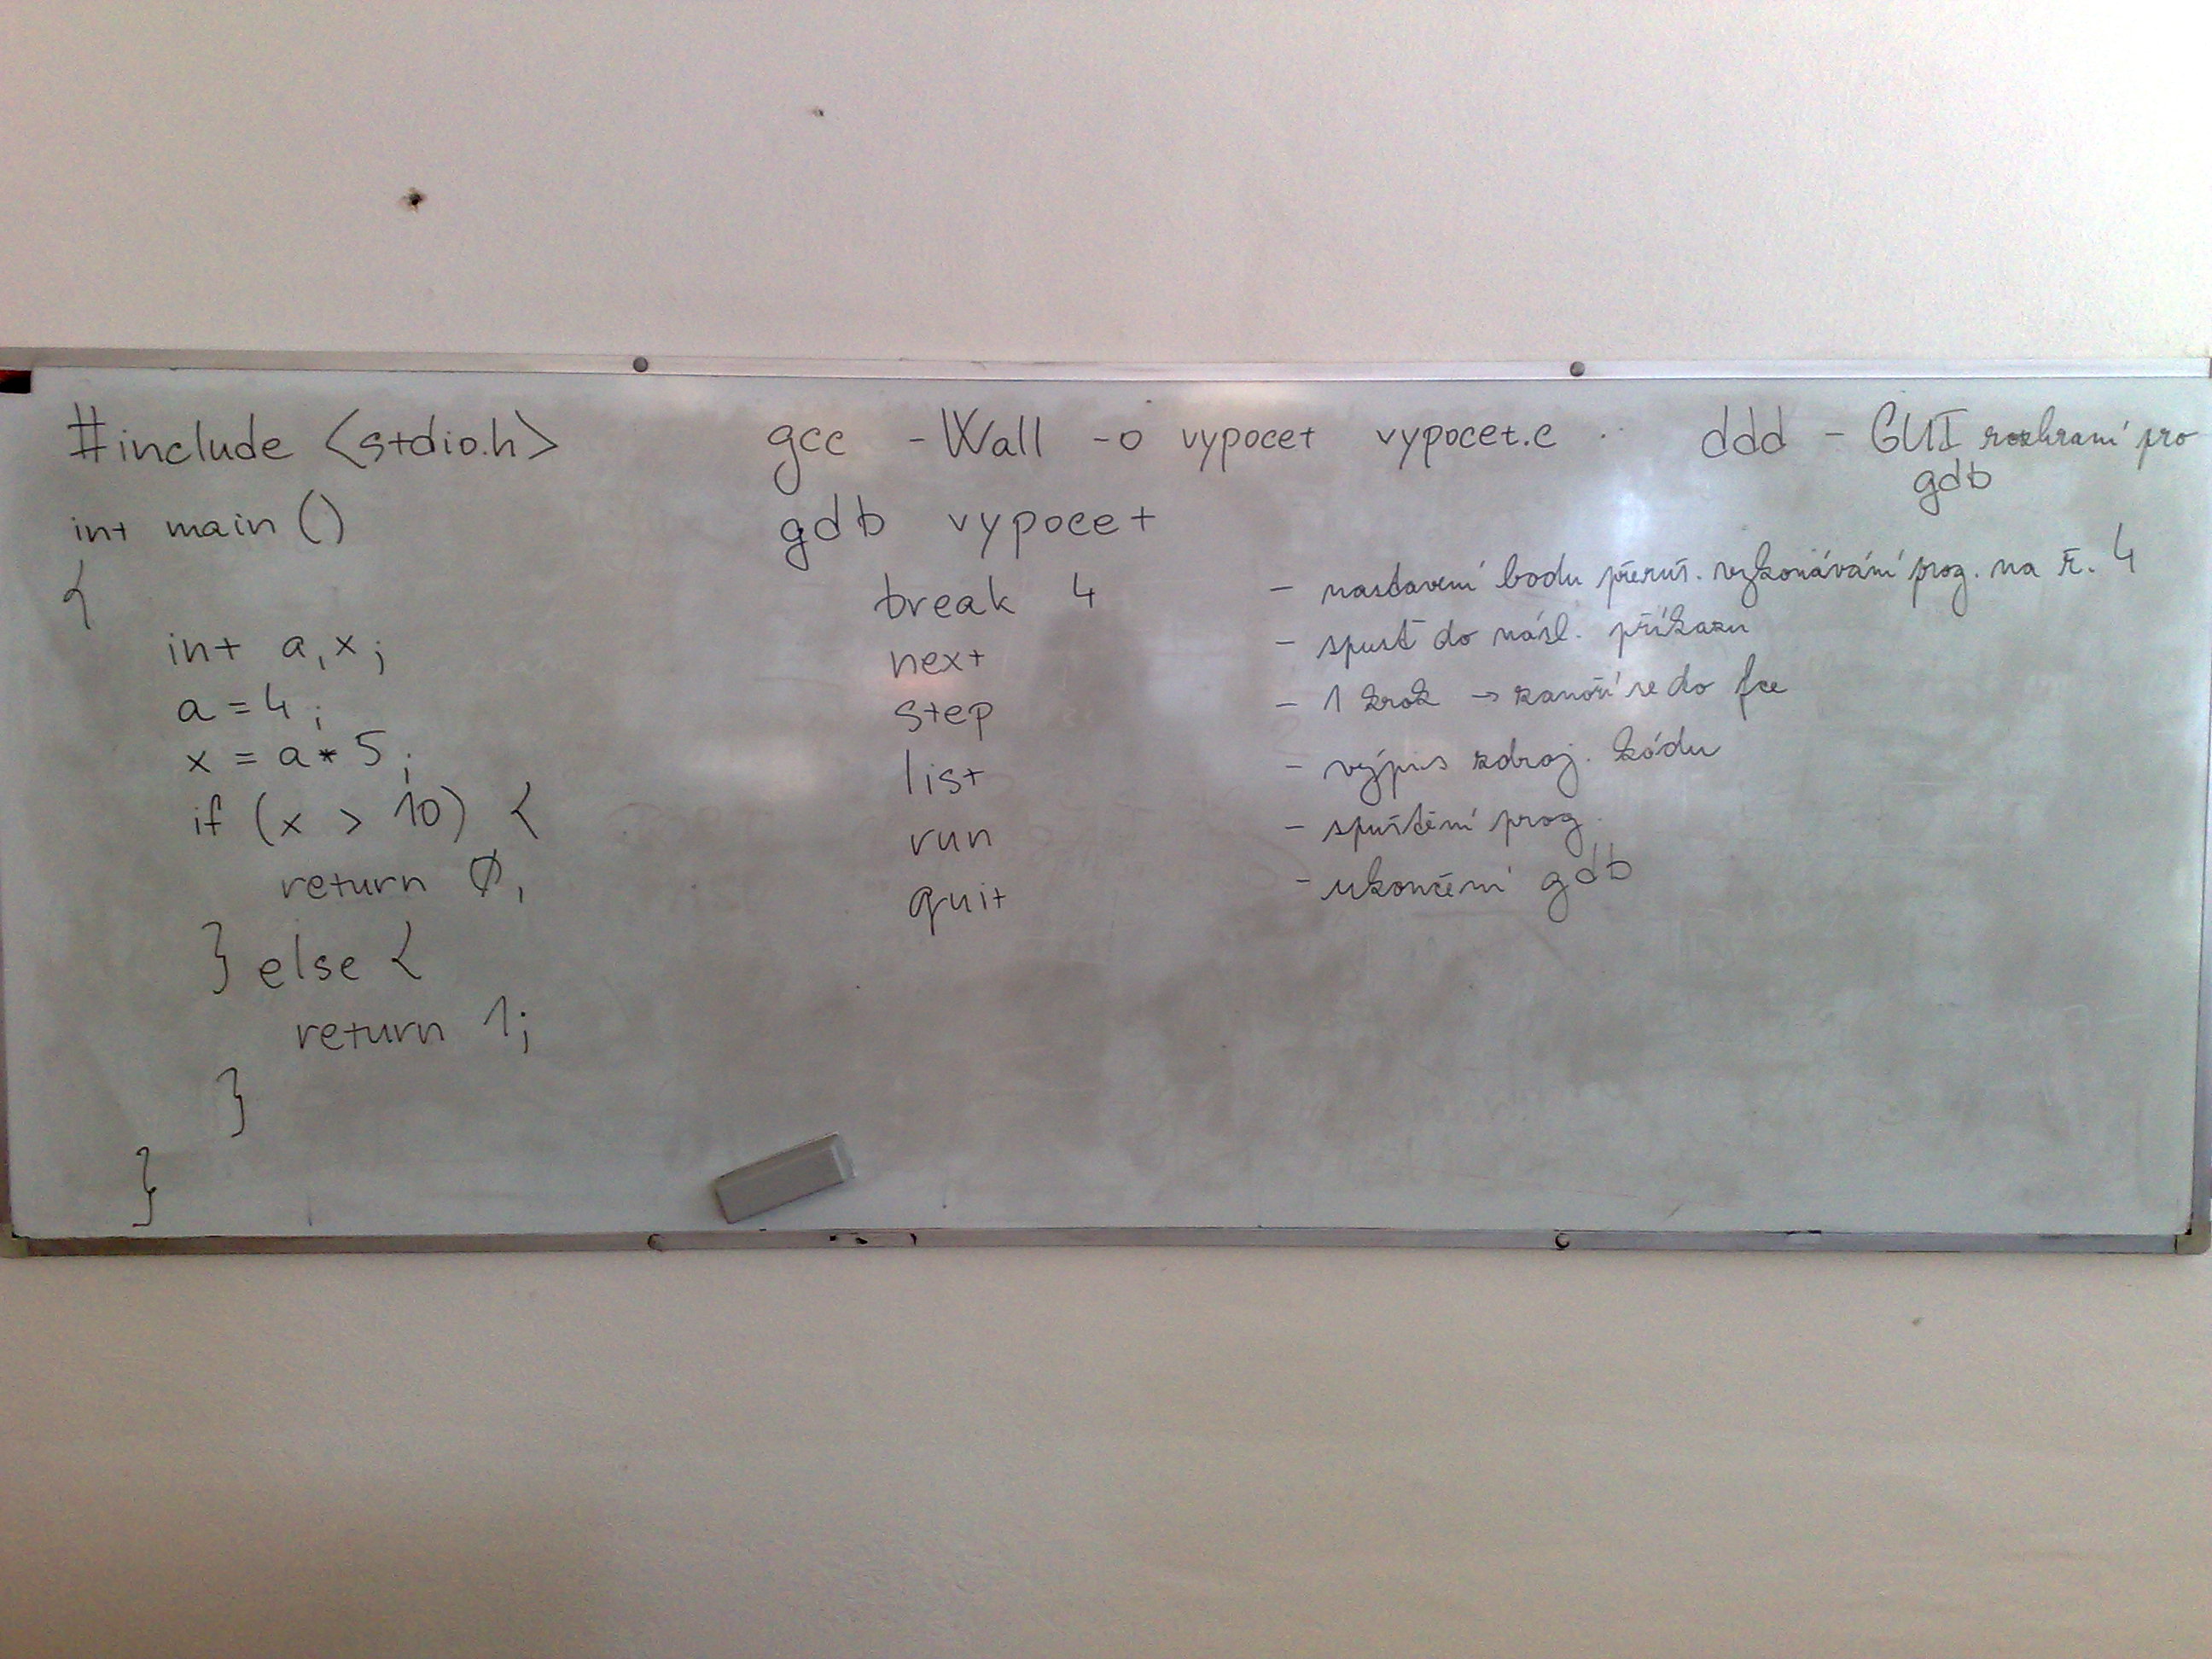 #include <stdio.h>
int main ()
{
int a,x;
a = 4;
x = a * 5;
if (x > 10) {
return 0,
} else {
return 1;
}
}
gcc -Wall -o vypocet vypocet.c
gdb vypocet
break 4 - nastavení bodu přeruš. vykonávání prog. na ř. 4
next - spusť do násl. příkazu
step - 1 krok → zanoří se do fce
list - výpis zdroj. kódu
run - spuštění prog.
quit - ukončení gdb
ddd - GUI rozhraní pro
gdb